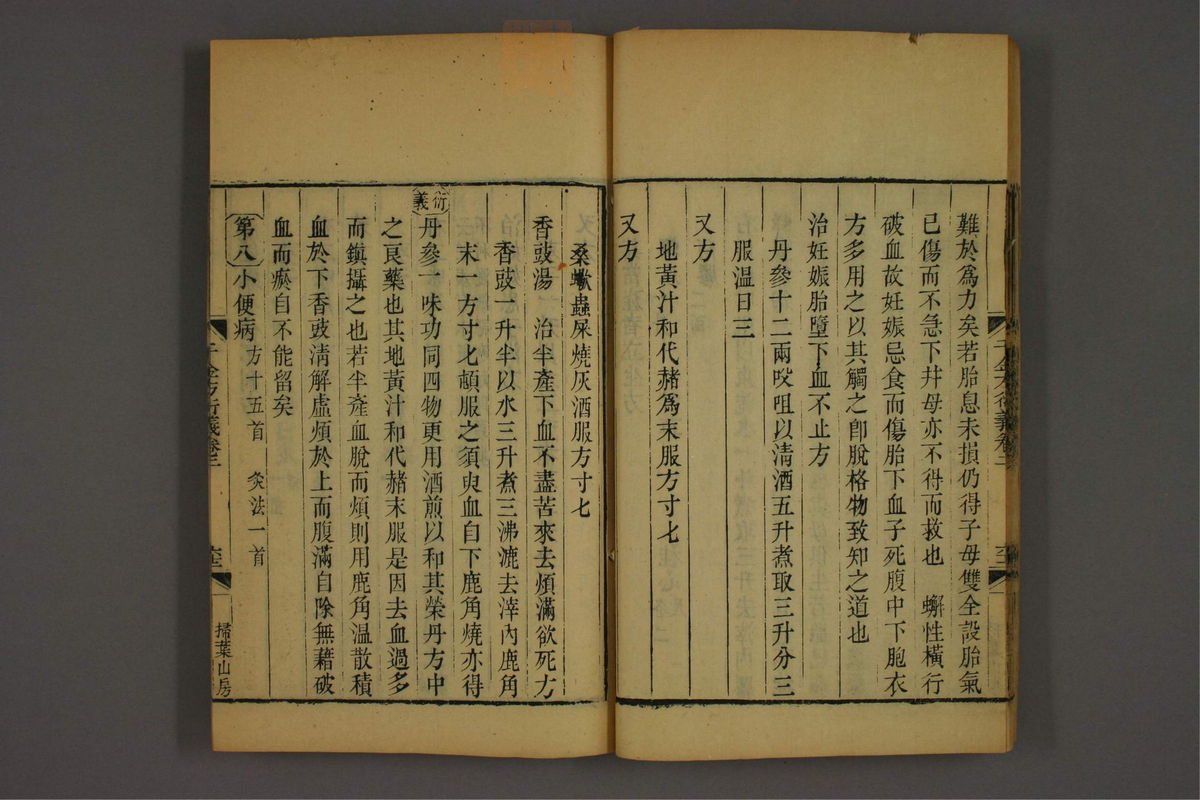 難於爲力矣若胎息未損仍得子母雙全設胎氣
已傷而不急下幷母亦不得而救也　蠏性橫行
破血故妊娠忌食而傷胎下血子死腹中下胞衣
方多用之以其觸之卽脫格物致知之道也
治妊娠胎墮下血不止方
丹參十二兩㕮咀以清酒五升煮取三升分三
服温日三
又方
地黃汁和代赭爲末服方寸匕
又方
桑蠍蟲屎燒灰酒服方寸匕
香豉湯　治半產下血不盡苦來去煩滿欲死方
香豉一升半以水三升煮三沸漉去滓內鹿角
末一方寸匕頓服之須臾血自下鹿角燒亦得
衍義
丹參一味功同四物更用酒煎以和其榮丹方中
之良藥也其地黃汁和代赭末服是因去血過多
而鎭攝之也若半產血脫而煩則用鹿角温散積
血於下香豉清解虛煩於上而腹滿自除無藉破
血而瘀自不能留矣
第八小便病　方十五首　灸法一首
千金方衍義卷三
掃葉山房